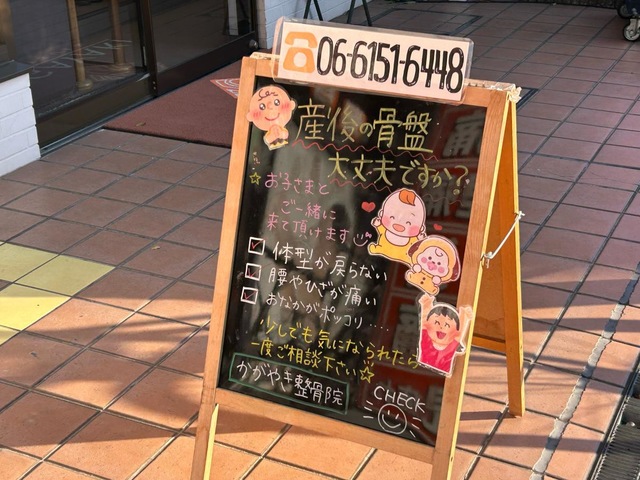 ☎06-6151-6448
産後の骨盤
大丈夫ですか?
☆お子さまと
ご一緒に
来て頂けます
☑体型が戻らない
☑腰やひざが痛い
☑おなかがポッコリ....
少しでも気になられたら
一度ご相談下さい☆
かがやき整骨院
CHECK